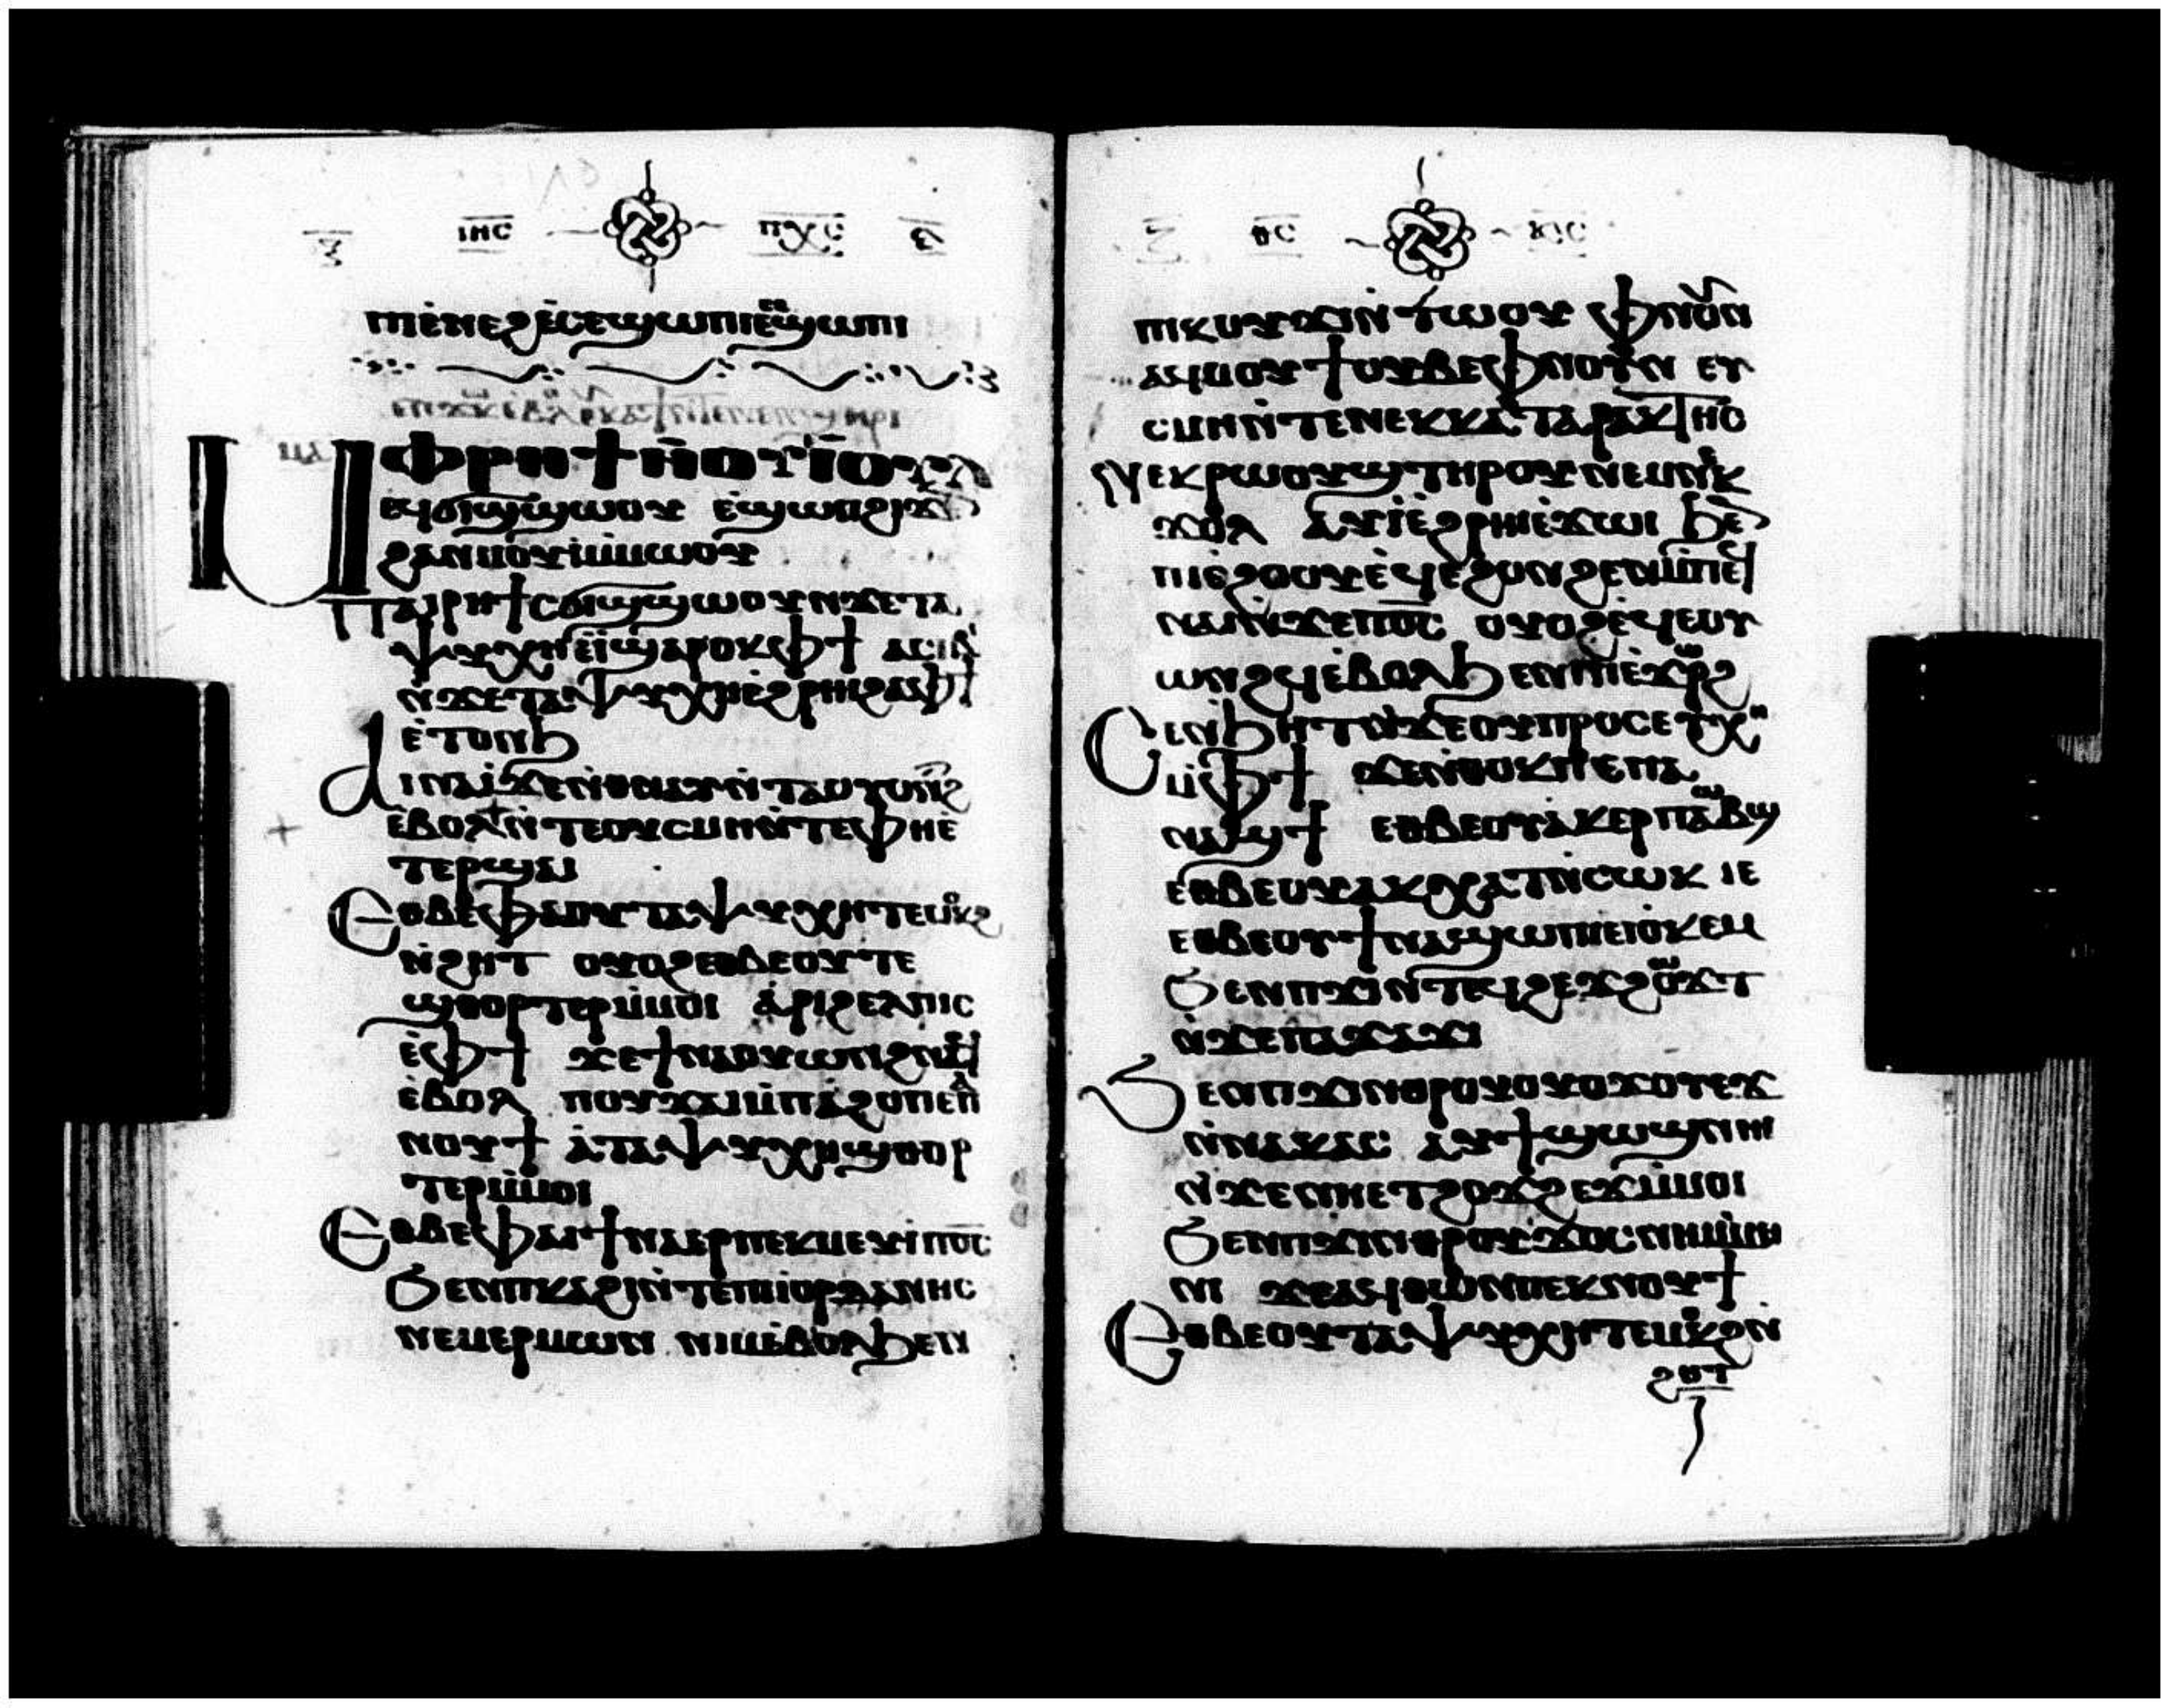 ⲓⲏⲥ ⲡⲭⲥ
ⲡⲓⲉⲛⲉϩ ⲉⲥⲉϣⲱⲡⲓ ⲉⲥⲉϣⲱⲡⲓ
Ⲙⲫⲣⲏϯ ⲛⲟⲩⲓⲟⲩⲗ
ⲉϥϭⲓϣϣⲱⲟⲩ ⲉϣⲱⲡ ϩⲓϫⲉⲛ
ϩⲁⲛⲙⲟⲩⲙⲙⲱⲟⲩ
Ⲡⲁⲓⲣⲏϯ ⲥϭⲓϣϣⲱⲟⲩ ⲛϫⲉ ⲧⲁ
ⲯⲩⲭⲏ ⲉⲓ ϣⲁⲣⲟⲕ ⲫϯ ⲁⲥⲓⲃⲓ
ⲛϫⲉ ⲧⲁⲯⲩⲭⲏ ⲉϩⲣⲏⲓ ϩⲁ ⲫϯ
ⲉⲧⲟⲛϧ
Ⲁⲓⲛⲁⲓ ϫⲉ ⲛⲑⲛⲁⲩ ⲛⲧⲁⲟⲩⲟⲛϩ
ⲉⲃⲟⲗ ⲛⲧⲉ ⲟⲩⲥⲙⲏ ⲛⲧⲉ ⲫⲏⲉ
ⲧⲉⲣϣⲁⲓ
Ⲉⲑⲃⲉ ⲫⲁⲓ ⲟⲩ ⲧⲁⲯⲩⲭⲏ ⲧⲉⲙⲟⲕϩ
ⲛϩⲏⲧ ⲟⲩⲟϩ ⲉⲑⲃⲉⲟⲩ ⲧⲉ
ϣⲑⲟⲣⲧⲉⲣ ⲙⲙⲟⲓ ⲁⲣⲓϩⲉⲗⲡⲓⲥ
ⲉⲫϯ ϫⲉ ϯⲛⲁⲟⲩⲱⲛϩ ⲛⲁϥ
ⲉⲃⲟⲗ ⲡⲟⲩϫⲁⲓ ⲙⲡⲁϩⲟ ⲡⲉ ⲡⲁ
ⲛⲟⲩϯ ⲁ ⲧⲁⲯⲩⲭⲏ ϣⲑⲟⲣ
ⲧⲉⲣ ⲙⲙⲟⲓ
Ⲉⲑⲃⲉ ⲫⲁⲓ ϯⲛⲁⲉⲣⲡⲉⲕⲙⲉⲩⲓ ⲡⲟⲥ
ϧⲉⲛ ⲡⲕⲁϩⲓ ⲛⲧⲉ ⲡⲓⲓⲟⲣⲇⲁⲛⲏⲥ
ⲛⲉⲙ ⲉⲣⲙⲱⲛ ⲛⲓⲙ ⲉⲃⲟⲗϧⲉⲛ
ⲑⲥ ⲩⲓⲥ
ⲡⲓⲕⲟⲩϫⲓ ⲛⲧⲱⲟⲩ ⲫⲛⲟⲩⲛ
ⲁϥⲙⲟⲩϯ ⲟⲩⲃⲉ ⲫⲛⲟⲩⲛ ⲉⲩ
ⲥⲙⲏ ⲛⲧⲉ ⲛⲉⲕⲕⲁⲧⲁⲣⲁⲕⲧⲏⲥ
Ⲛⲉⲕⲣⲱⲟⲩϣ ⲧⲏⲣⲟⲩ ⲛⲉⲙ ⲛⲉⲕ
ϫⲟⲗ ⲁⲩⲓ ⲉϩⲣⲏⲓ ⲉϫⲱⲓ ϧⲉⲛ
ⲡⲓⲉϩⲟⲟⲩ ⲉϥⲉϩⲟⲛϩⲉⲛ ⲙⲡⲉϥ
ⲛⲁⲓ ⲛϫⲉ ⲡⲟⲥ ⲟⲩⲟϩ ⲉϥⲉⲟⲩ
ⲱⲛϩϥ ⲉⲃⲟⲗ ϧⲉⲛ ⲡⲓⲉϫⲱⲣϩ
Ⲥⲉⲛϧⲏⲧ ⲛϫⲉ ⲟⲩⲡⲣⲟⲥⲉⲩⲭⲏ
ⲙⲫϯ ϫⲉ ⲛⲑⲟⲕ ⲡⲉ ⲡⲁ
ⲛⲁϣϯ ⲉⲑⲃⲉⲟⲩ ⲁⲕⲉⲣⲡⲁⲱⲃϣ
ⲉⲑⲃⲉⲟⲩ ⲁⲕⲭⲁⲧ ⲛⲥⲱⲕ ⲓⲉ
ⲉⲑⲃⲉⲟⲩ ϯⲛⲁϣⲱⲡⲓ ⲉⲓⲟⲕⲉⲙ
Ϧⲉⲛ ⲡϫⲓⲛⲧⲉϥϩⲉϫϩⲱϫⲧ
ⲛϫⲉ ⲡⲁϫⲁϫⲓ
Ϧⲉⲛ ⲡϫⲓⲛⲑⲣⲟⲩⲟⲩⲟϫⲟⲩⲉϫ
ⲛⲛⲁⲕⲁⲥ ⲁⲩϯϣⲱϣ ⲛⲏⲓ
ⲛϫⲉ ⲛⲏⲉⲧϩⲟϫϩⲉϫ ⲙⲙⲟⲓ
Ϧⲉⲛ ⲡϫⲓⲛⲑⲣⲟⲩϫⲟⲥ ⲛⲏⲓ ⲙⲙⲏ
ⲛⲓ ϫⲉ ⲁϥⲑⲱⲛ ⲡⲉⲕⲛⲟⲩϯ
Ⲉⲑⲃⲉⲟⲩ ⲧⲁⲯⲩⲭⲏ ⲧⲉⲙⲟⲕϩ ⲛ
ϩⲏⲧ